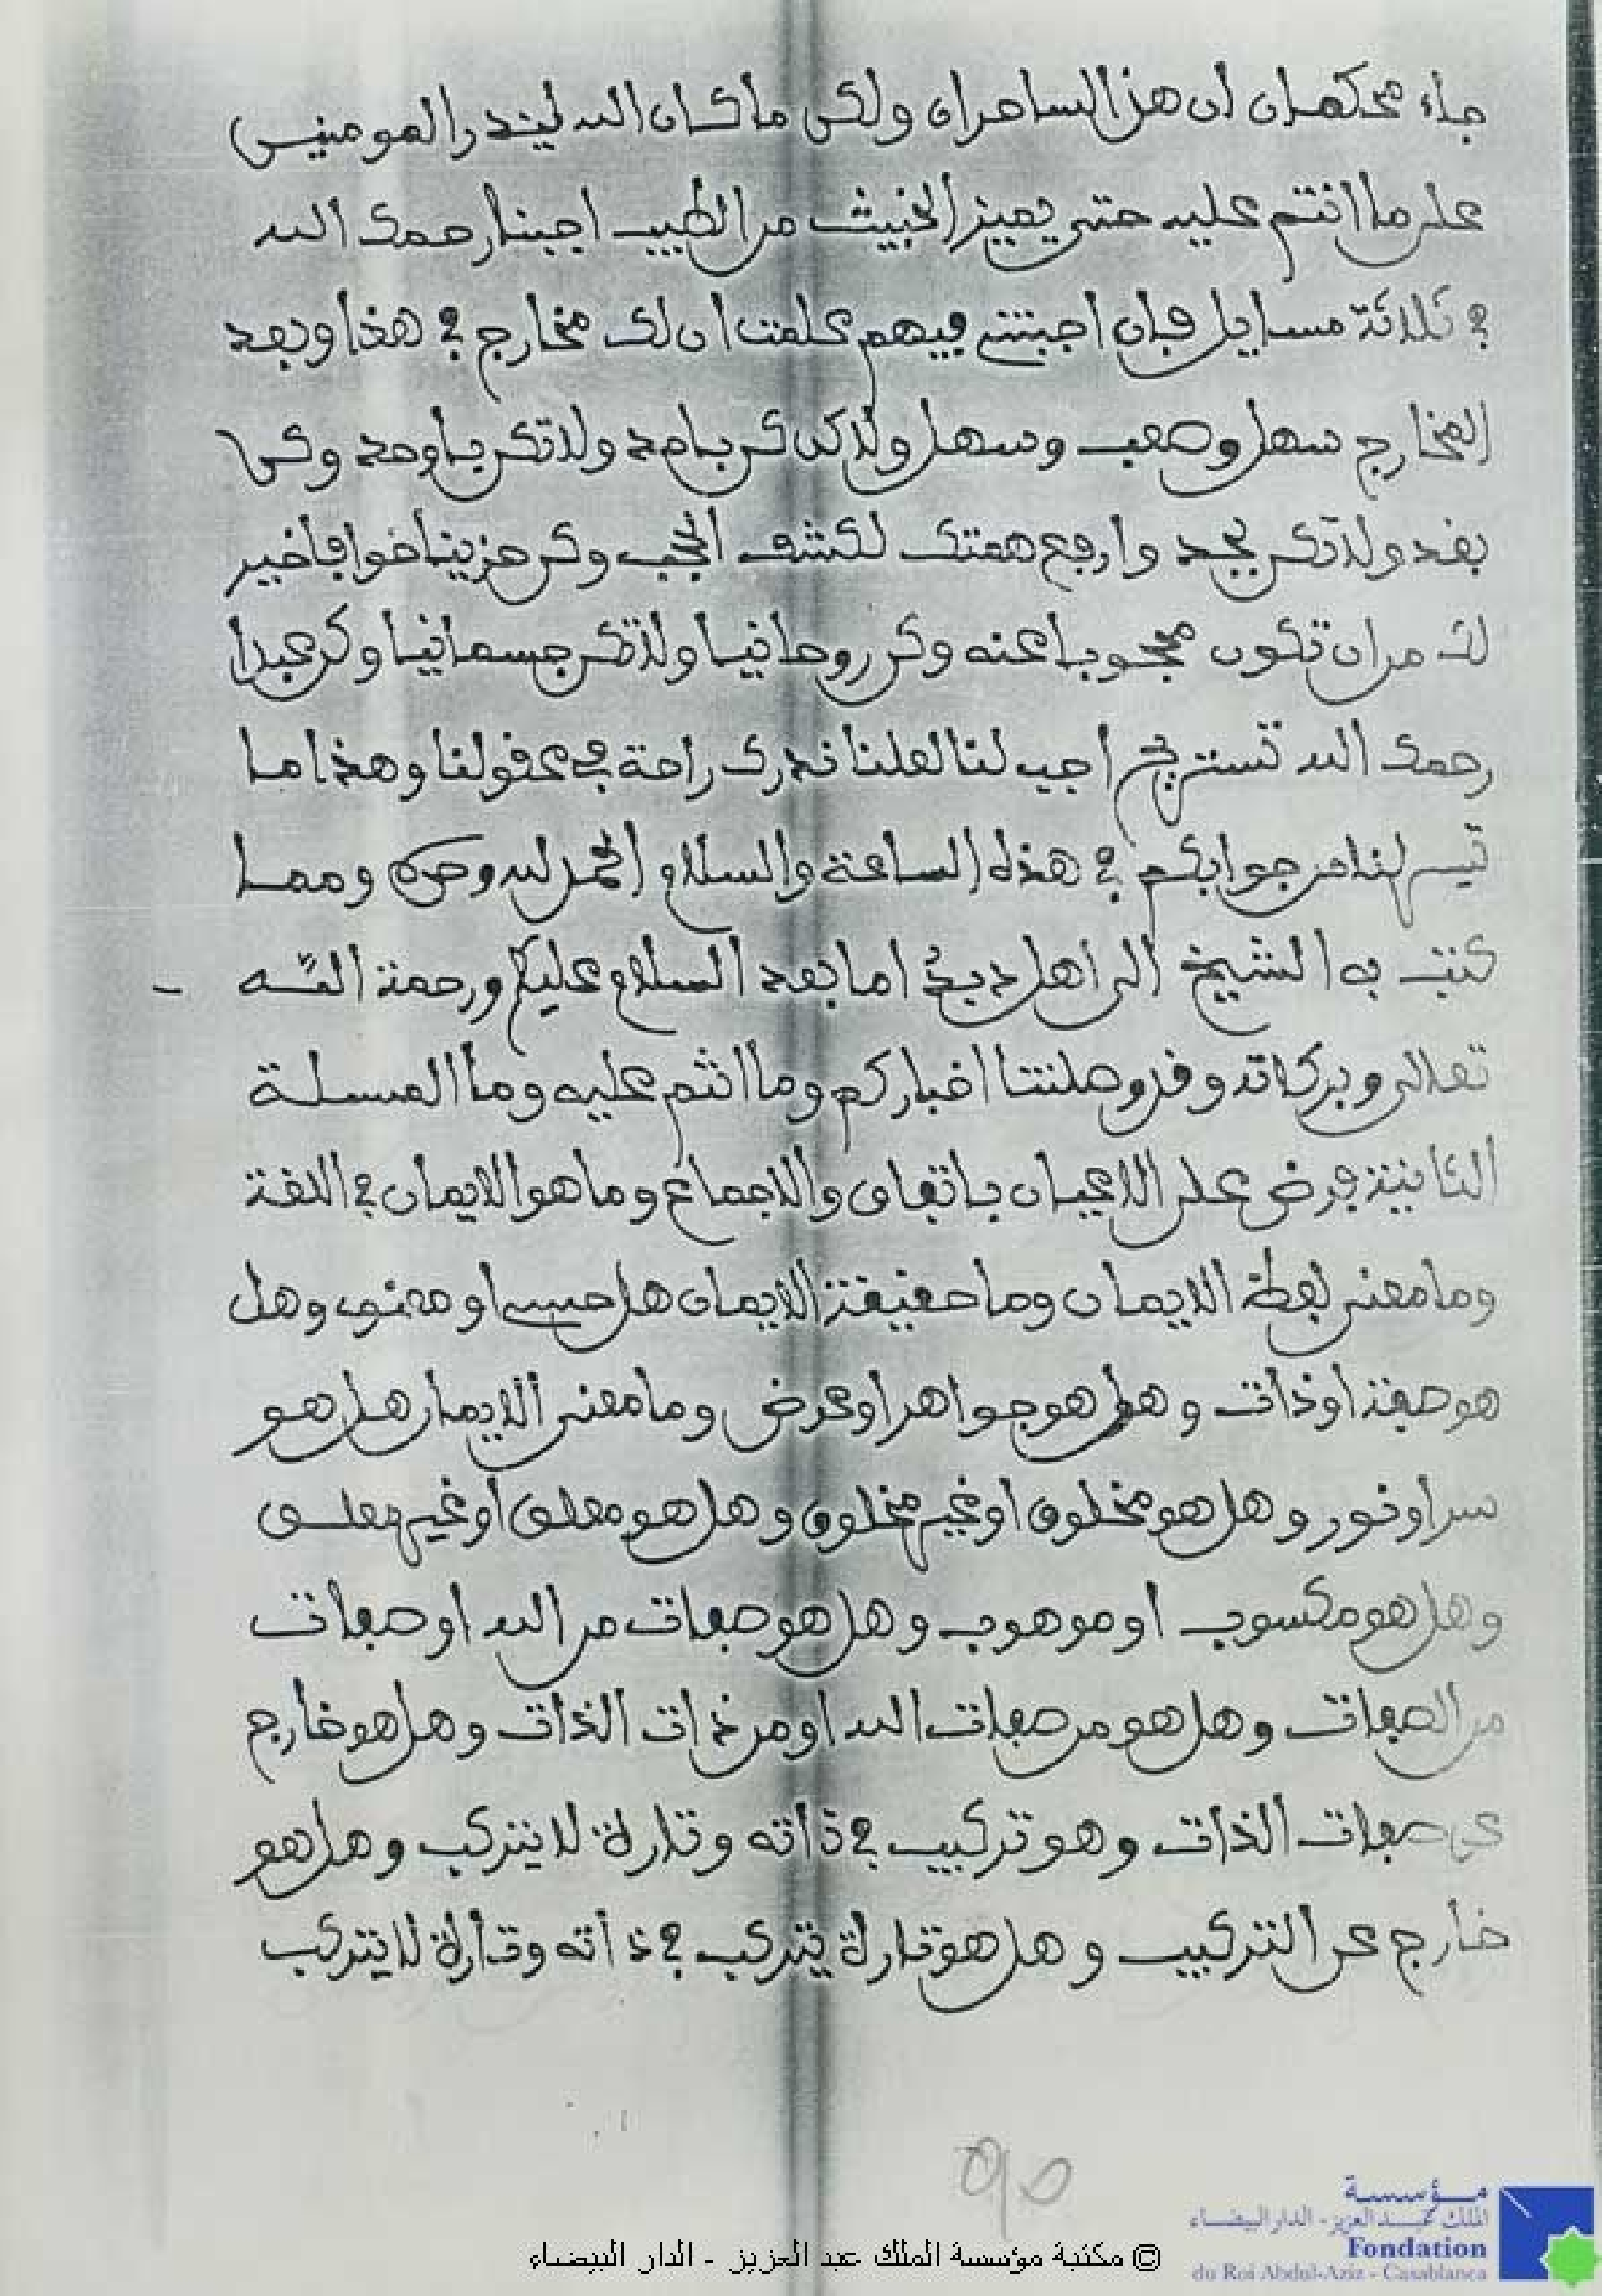 جاء محكمان ان هذا لساحران ولكن ما كان الله ليندر المومنين
على ما انتم عليه حتى يميز الخبيث من الطيب اجبنا رحمك الله
في ثلاثة مسايل فان اجبتني فيهم علمت ان لك مخارج في هذا وبعد
المخارج سهل وصعب وسهل ولاكن كن باحد ولا تكن باوحد وكن
بفد ولا تكن بجد وارفع همتك لكشف الحجب وكن حزينا خوافا خير
لك من ان تكون محجوبا عنه وكن روحانيا ولا تكن جسمانيا وكن عبدا
رحمك الله تستريح اجيب لنا لعلنا ندرك راحة في عقولنا وهذا ما
تيسر لنا من جوابكم في هذه الساعة والسلام الحمد لله وحده ومما
كتب به الشيخ الى اهل دبدُ اما بعد السلام عليكم ورحمة الله
تعالى وبركاته وقد وصلتنا اخباركم وما انتم عليه وما المسلة
الثانية فرض على الاعيان باتفاق والاجماع وما هو الايمان في اللغة
وما معنى لفظة الايمان وما حقيقة الايمان هل حسي او معنوي وهل
هو صفة او ذات وهل هو جواهر او عرض وما معنى الايمان هل هو
سر او نور وهل هو مخلوق او غير مخلوق وهل هو معلق او غير معلق
وهل هو مكسوب او موهوب وهل هو صفات من الله او صفات
من الصفات وهل هو من صفات الله او من ذات الذات وهل هو خارج
عن صفات الذات وهو تركيب في ذاته وتارة لا يتركب وهل هو
خارج عن التركيب وهل هو تارة يتركب في ذاته وتارة لا يتركب
90
مؤسسة
الملك عبد العزيز - الدار البيضاء
Fondation
du Roi Abdul-Aziz - Casablanca
© مكتبة مؤسسة الملك عبد العزيز - الدار البيضاء